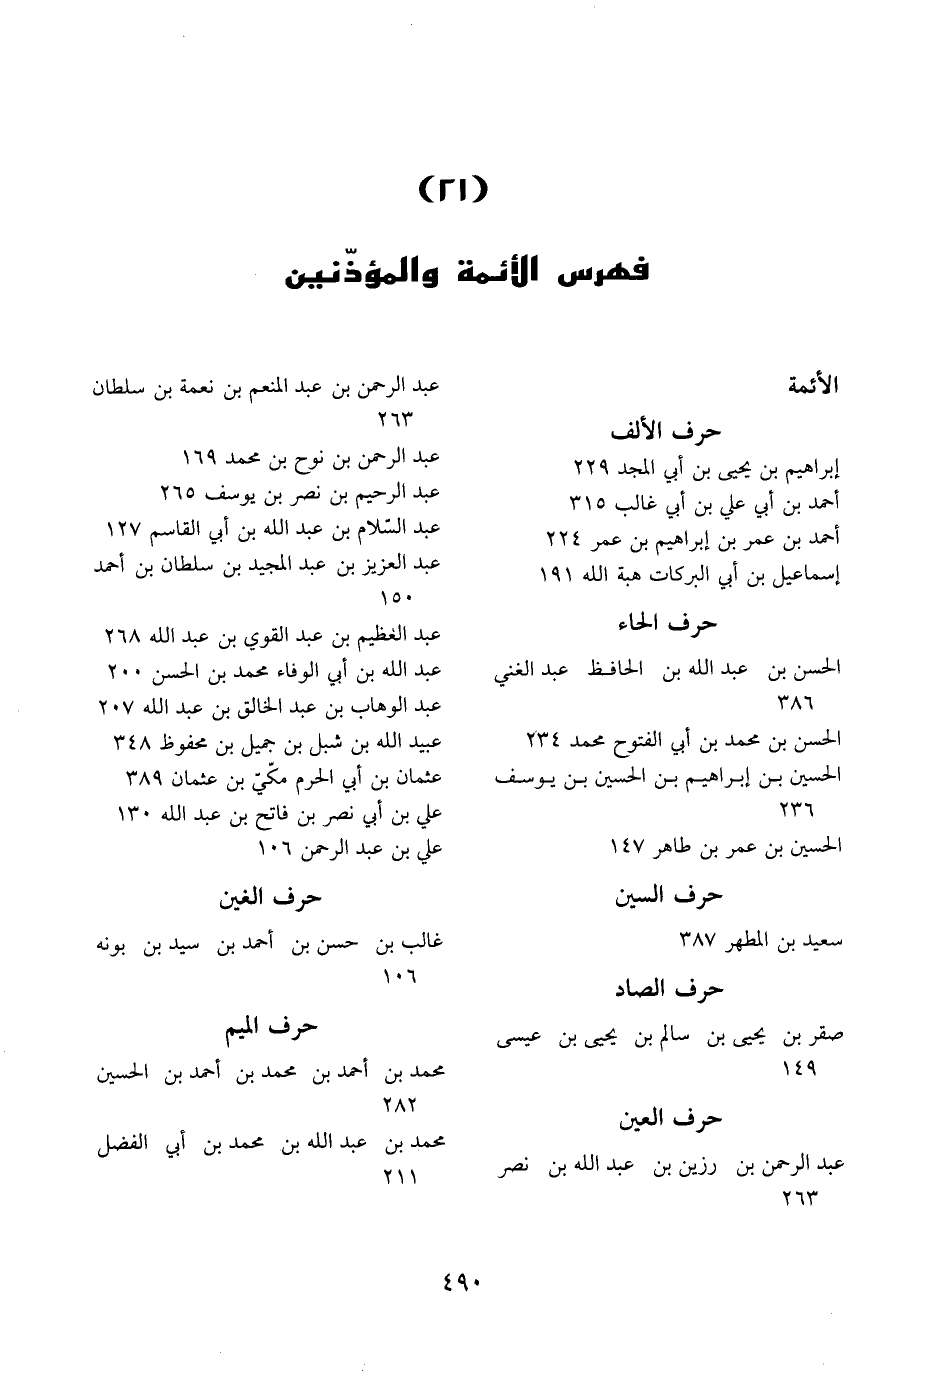 (٢١)
فهرس الأئمة والمؤذّنين
الأئمة
حرف الألف
إبراهيم بن يحيى بن أبي المجد ٢٢٩
أحمد بن أبي علي بن أبي غالب ٣١٥
أحمد بن عمر بن إبراهيم بن عمر ٢٢٤
إسماعيل بن أبي البركات هبة الله ١٩١
حرف الحاء
الحسن بن عبد الله بن الحافظ عبد الغني
٣٨٦
الحسن بن محمد بن أبي الفتوح محمد ٢٣٤
الحسين بن إبراهيم بن الحسين بن يوسف
٢٣٦
الحسين بن عمر بن طاهر ١٤٧
حرف السين
سعيد بن المطهر ٣٨٧
حرف الصاد
صقر بن يحيى بن سالم بن يحيى بن عيسى
١٤٩
حرف العين
عبد الرحمن بن رزين بن عبد الله بن نصر
٢٦٣
عبد الرحمن بن عبد المنعم بن نعمة بن سلطان
٢٦٣
عبد الرحمن بن نوح بن محمد ١٦٩
عبد الرحيم بن نصر بن يوسف ٢٦٥
عبد السّلام بن عبد الله بن أبي القاسم ١٢٧
عبد العزيز بن عبد المجيد بن سلطان بن أحمد
١٥٠
عبد العظيم بن عبد القوي بن عبد الله ٢٦٨
عبد الله بن أبي الوفاء محمد بن الحسن ٢٠٠
عبد الوهاب بن عبد الخالق بن عبد الله ٢٠٧
عبيد الله بن شبل بن جميل بن محفوظ ٣٤٨
عثمان بن أبي الحرم مكّيّ بن عثمان ٣٨٩
علي بن أبي نصر بن فاتح بن عبد الله ١٣٠
علي بن عبد الرحمن ١٠٦
حرف الغين
غالب بن حسن بن أحمد بن سيد بن بونه
١٠٦
حرف الميم
محمد بن أحمد بن محمد بن أحمد بن الحسين
٢٨٢
محمد بن عبد الله بن محمد بن أبي الفضل
٢١١
٤٩٠